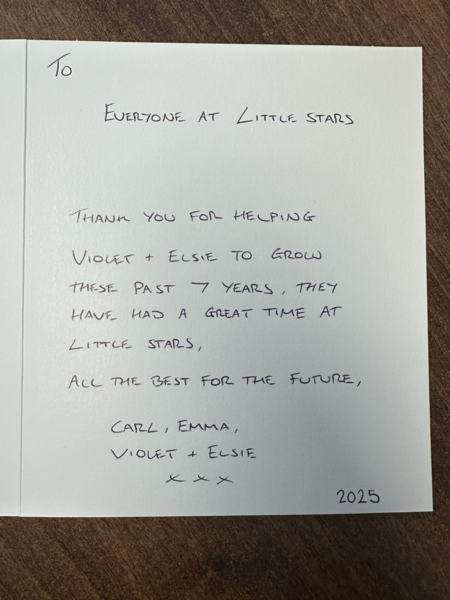 To
EVERYONE AT LITTLE STARS
THANK YOU FOR HELPING
VIOLET + ELSIE TO GROW
THESE PAST 7 YEARS, THEY
HAVE HAD A GREAT TIME AT
LITTLE STARS,
ALL THE BEST FOR THE FUTURE,
CARL, EMMA,
VIOLET + ELSIE
x x x
2025